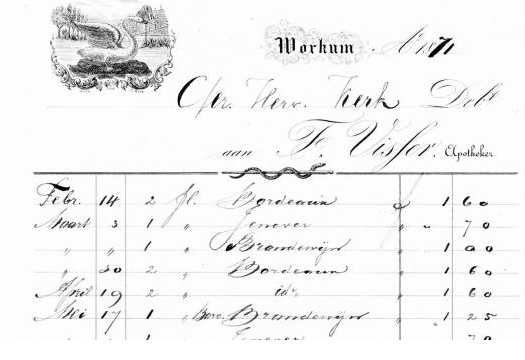 Workum A° 1871
Chr. Herv. Kerk Debt
aan F. Visser, Apotheker
Febr. 14 2 fl. Bordeaux a f 1 60
Maart 3 1 " Jenever " " 70
" " 1 " Brandewijn " 1 00
" 30 2 " Bordeaux " 1 60
April 19 2 " id. " 1 60
Mei 17 1 " Brandewijn " 1 25
1 Jenever 70